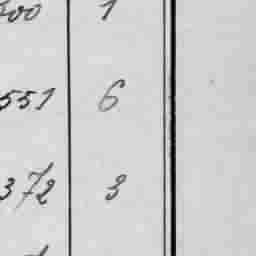 700 1
551 6
372 3